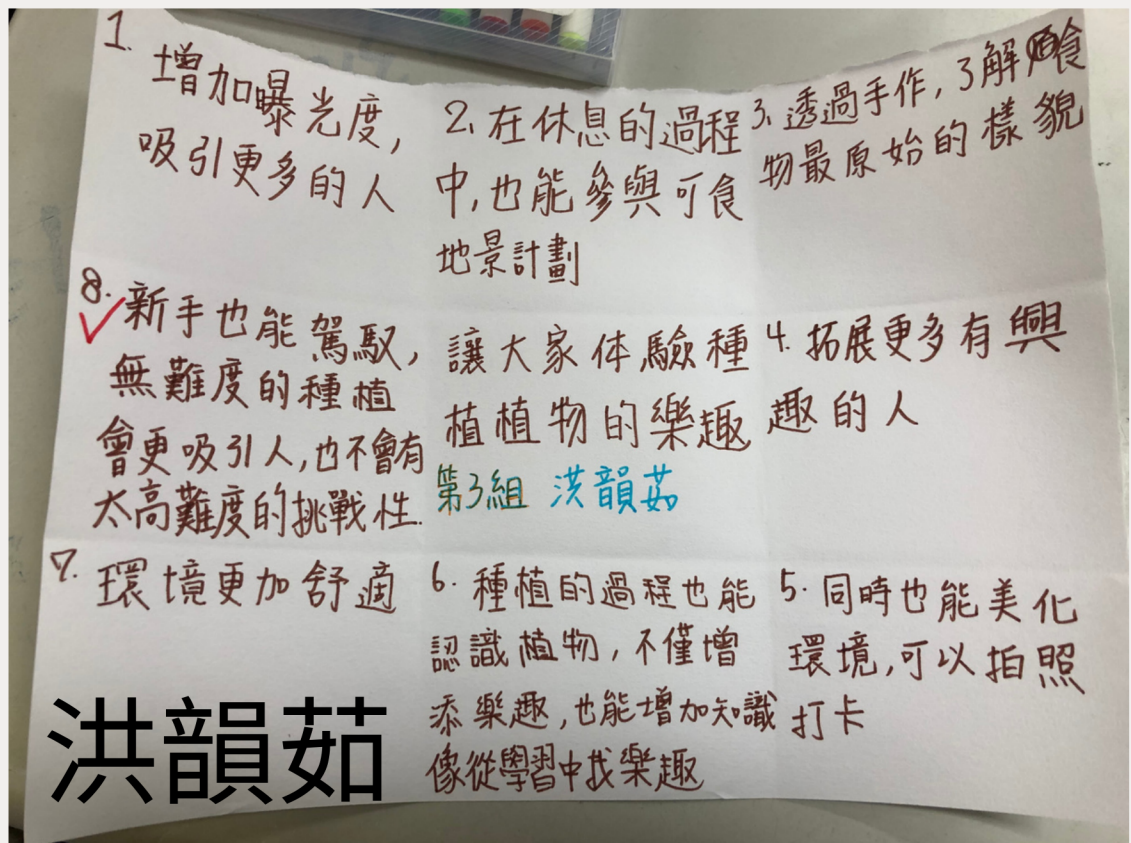 1.
增加曝光度,
吸引更多的人
2. 在休息的過程
中,也能參與可食
地景計劃
3. 透過手作,了解食
物最原始的樣貌
8.
新手也能駕馭,
無難度的種植
會更吸引人,也不會有
太高難度的挑戰性.
讓大家体驗種
植植物的樂趣
第3組 洪韻茹
4. 拓展更多有興
趣的人
7. 環境更加舒適
6. 種植的過程也能
認識植物,不僅增
添樂趣,也能增加知識
像從學習中找樂趣
5. 同時也能美化
環境,可以拍照
打卡
洪韻茹